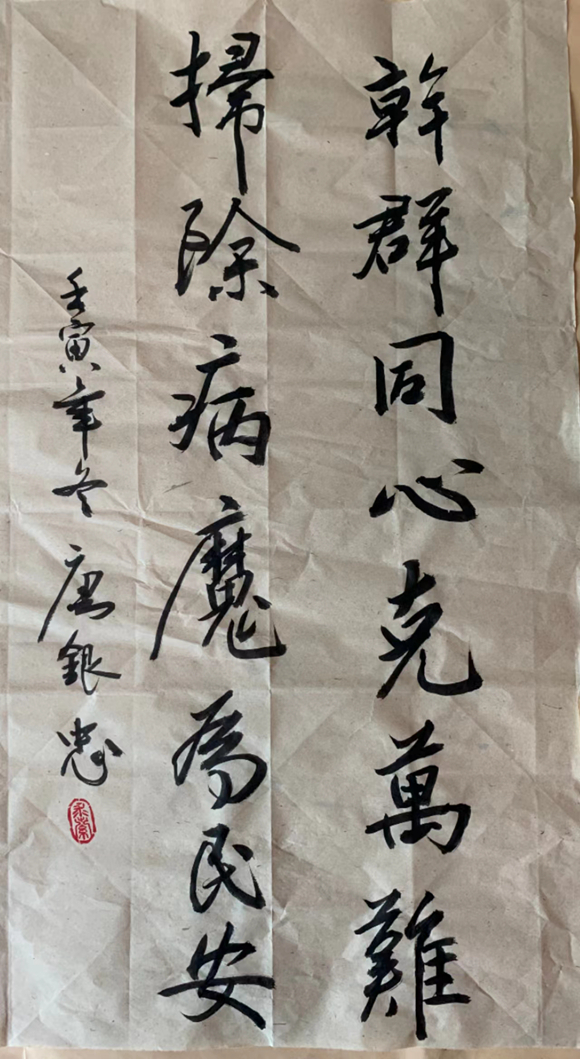 幹群同心克萬難
掃除病魔為民安
壬寅年冬唐銀忠